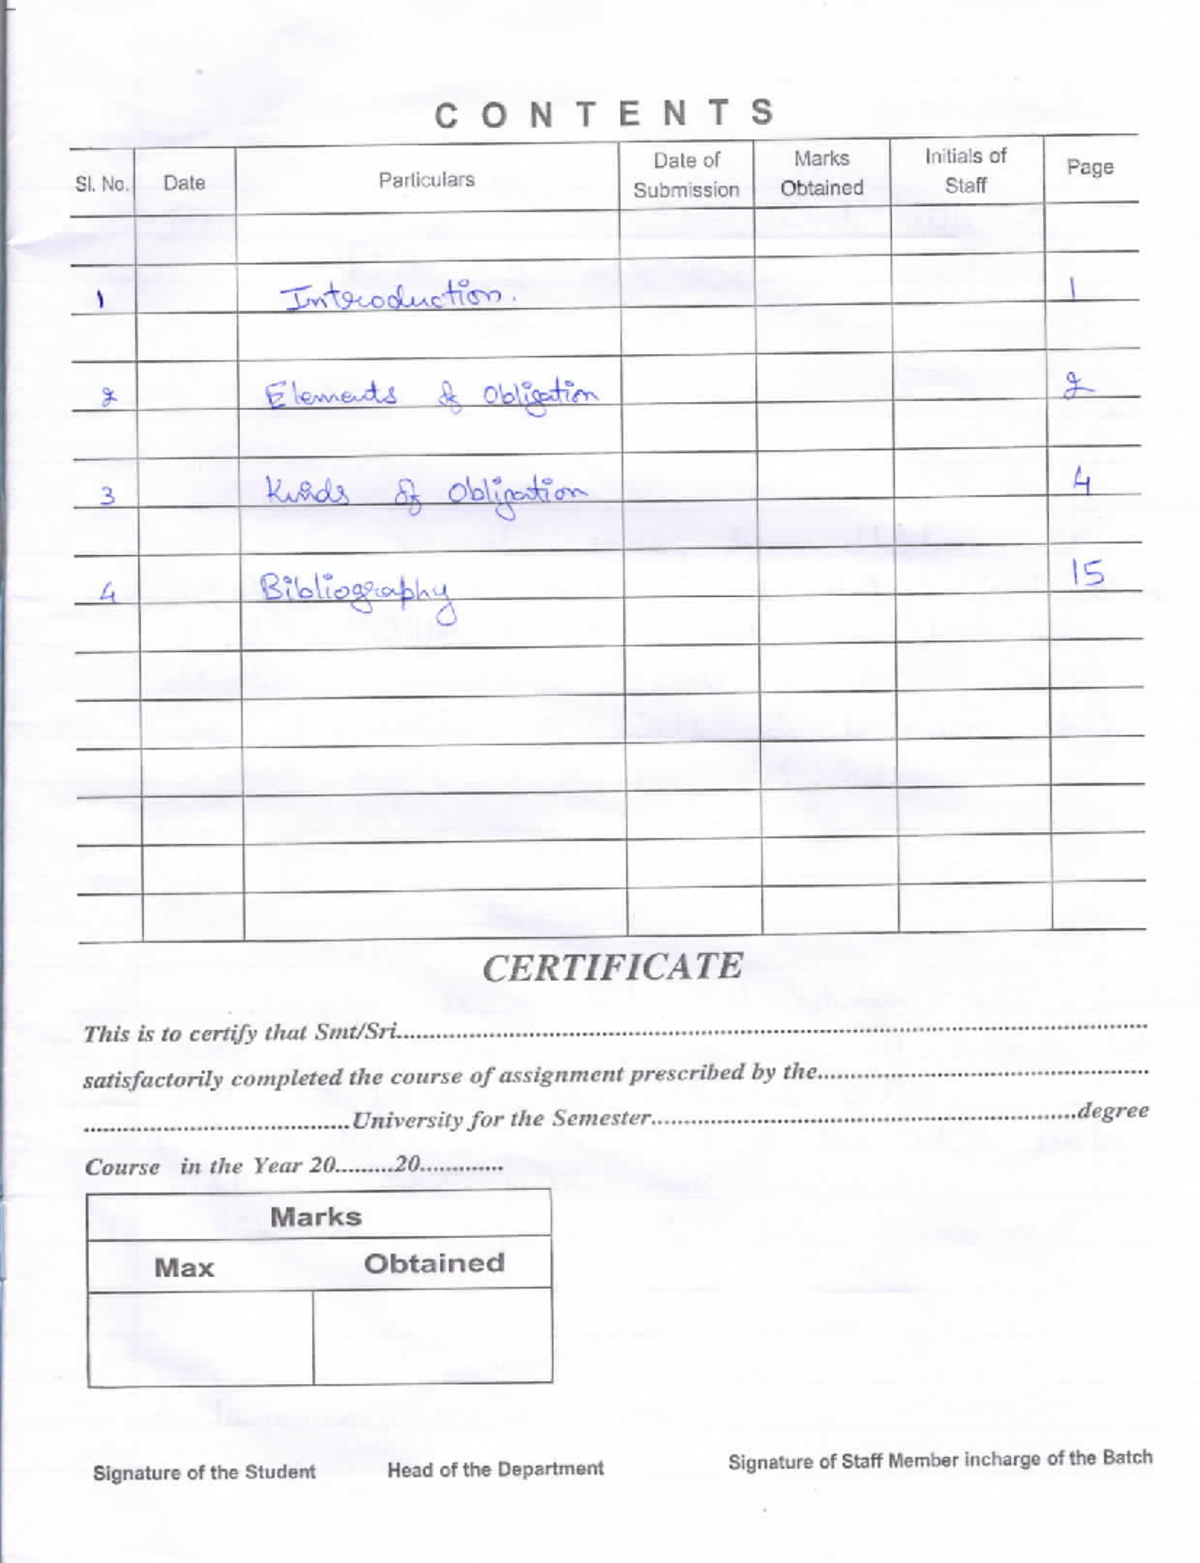 CONTENTS
Sl. No. Date Particulars Date of Submission Marks Obtained Initials of Staff Page
1 Introduction. 1
2 Elements of Obligation 2
3 Kinds of Obligation 4
4 Bibliography 15
CERTIFICATE
This is to certify that Smt/Sri..........................................................................................
satisfactorily completed the course of assignment prescribed by the........................................
................................University for the Semester..................................................degree
Course in the Year 20.........20.............
Marks
Max Obtained
Signature of the Student Head of the Department Signature of Staff Member incharge of the Batch